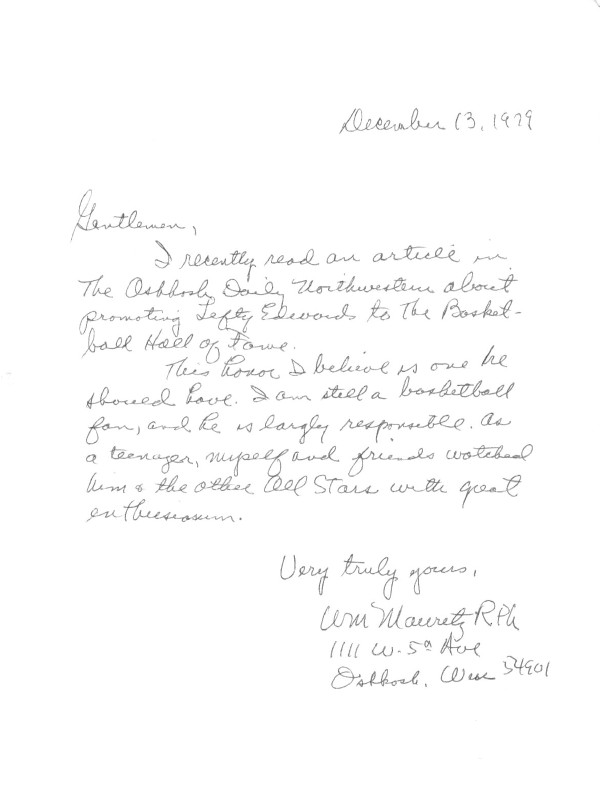 December 13, 1979
Gentlemen,
I recently read an article in
The Oshkosh Daily Northwestern about
promoting Lefty Edwards to The Basket-
ball Hall of Fame.
This honor I believe is one he
should have. I am still a basketball
fan, and he is largly responsible. As
a teenager, myself and friends watched
him & the other All Stars with great
enthusiasum.
Very truly yours,
Wm Mauretz RPh
1111 W. 5th Ave
Oshkosh, Wisc 54901